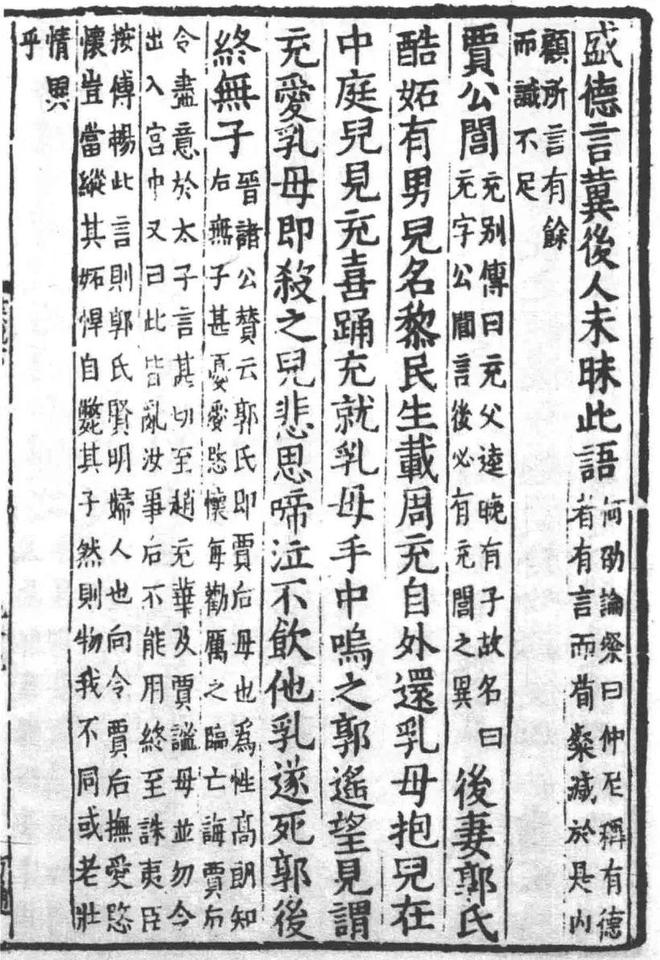 盛德言冀後人未昧此語何劭論粲曰仲尼稱有德者有言而荀粲減於是内
顧所言有餘而識不足
賈公閭充别傳曰充父逵晚有子故名曰充字公閭言後必有充閭之異後妻郭氏
酷妬有男兒名黎民生載周充自外還乳母抱兒在
中庭兒見充喜踊充就乳母手中嗚之郭遙望見謂
充愛乳母即殺之兒悲思啼泣不飲他乳遂死郭後
終無子晉諸公贊云郭氏即賈后母也為性高朗知后無子甚憂愛愍懷每勸厲之臨亡誨賈后
令盡意於太子言甚切至趙充華及賈謐母並勿令出入宫中又曰此皆亂汝事后不能用終至誅夷臣
按傅暢此言則郭氏賢明婦人也向令賈后撫愛愍懷豈當縱其妬悍自斃其子然則物我不同或老壯
情異乎